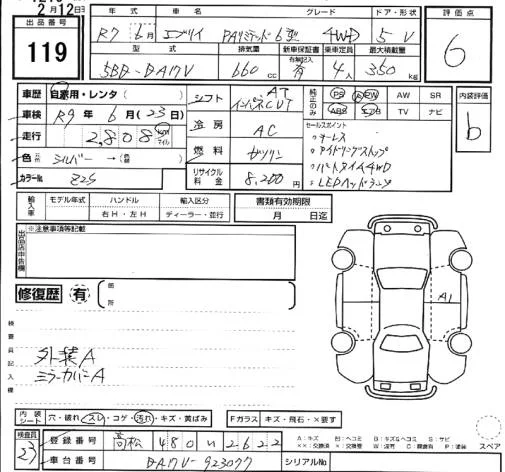 2月12日
出品番号 119
年式 車名 グレード ドア・形状
R7年6月 エブリイ PAリミテッド 6型 4WD 5 V
型式 排気量 新車保証書 乗車定員 最大積載量
5BD-DA17V 660cc 有 4人 350kg
評価点
6
車歴 自家用・レンタ( )
車検 R9年6月(23日)
走行 2,808 km マイル
色 元色 シルバー → 色替( )
カラーNo. Z2S
シフト AT インパネCVT
冷房 AC
燃料 ガソリン
リサイクル料金 8,200円
純正のみ PS PW AW SR
ABS エアB TV ナビ
セールスポイント
・キーレス
・アイドリングストップ
・パートタイム4WD
・LEDヘッドランプ
内装評価
b
輸入車 モデル年式 ハンドル 輸入区分
年 右H・左H ディーラー・並行
書類有効期限
月 日迄
出品店申告欄
※注意事項等記載
修復歴 有 箇所
検査員記入欄
外装A
ミラーカバーA
A1
内装シート 穴・破れ・スレ・コゲ・汚れ・キズ・黄ばみ
Fガラス キズ・飛石・×要す
A:キズ B:ヘコミ B:キズ&ヘコミ S:サビ
××:交換済 ×:交換要 W:波有 C:腐食有 P:塗装
スペア
検査員 23
登録番号 高松 480 い 2622
車台番号 DA17V-923077
シリアルNo.